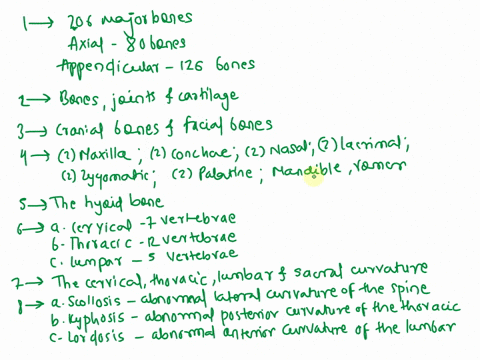 1 → 206 major bones
Axial - 80 bones
Appendicular - 126 bones
2 → Bones, joints & cartilage
3 → Cranial bones & facial bones
4 → (2) Maxilla; (2) Conchae; (2) Nasal; (2) lacrimal;
(2) Zygomatic; (2) Palatine; Mandible, vomer
5 → The hyoid bone
6 → a. Cervical - 7 vertebrae
b. Thoracic - 12 vertebrae
c. lumbar - 5 vertebrae
7 → The cervical, thoracic, lumbar & sacral curvature
8 → a. Scoliosis - abnormal lateral curvature of the spine
b. Kyphosis - abnormal posterior curvature of the thoracic
c. Lordosis - abnormal anterior curvature of the lumbar